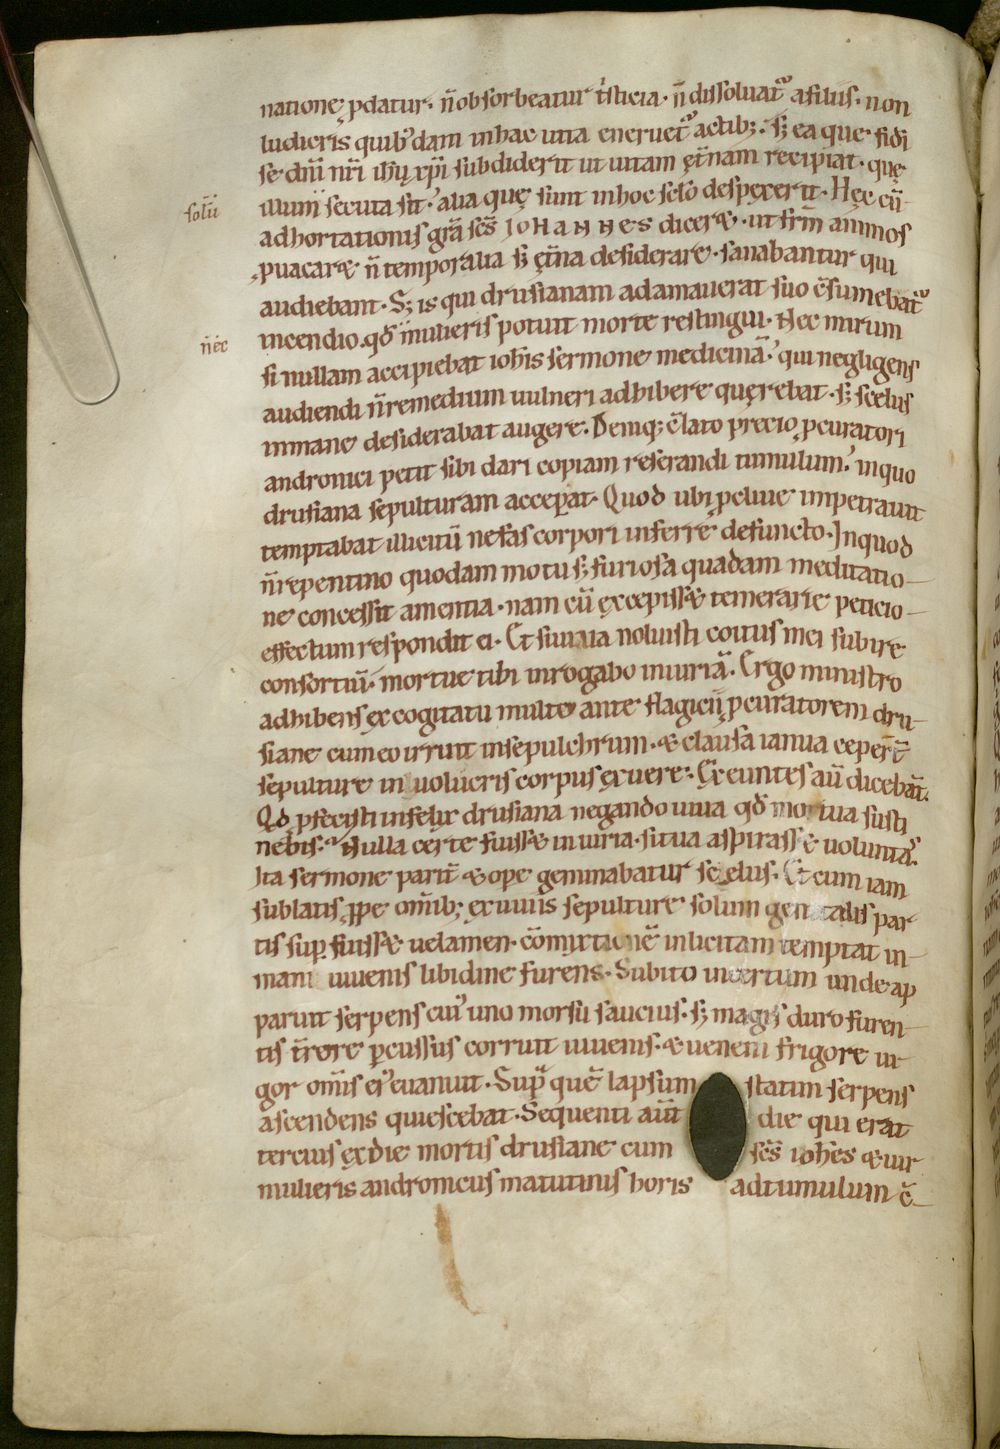 natione p̱datur· n̄ obsorbeatur tͥsticia· n̄ dissoluatᷣ afflus· non
ludicris quibꝰdam inhac uita eneruetᷣ actibꝫ· sꝫ ea que fidi
se dn̄i nr̄i ih̄u xp̄i subdiderit ut uitam ęt̄nam recipiat· quę
solū
illum secuta sit· alia quę sunt inhoc sc̄lo despexerit· Hęc cū
adhortationis gr̄a sc̄s IOHANNES diceret· ut frm̄ animos
p̱uacare n̄ temporalia sꝫ ęt̄na desiderare· sanabantur qui
audiebant· Sꝫ is qui drusianam adamauerat suo c̄sumebatᷣ
n̄ ec̄
incendio. qd̄ mulieris potuit morte restingui· Nec mirum
si nullam accipiebat ioh̄is sermone medicinā· qui negligens
audiendi n̄ remedium uulneri adhibere quęrebat· sꝫ scelus
inmane desiderabat augere. Deniqꝫ c̄lato precio p̱curatori
andronici petit sibi dari copiam reserandi tumulum· inquo
drusiana sepulturam acceꝑat· Quod ubi p̱cliue impetrauit
temptabat illicitū nefas corpori inferre defuncto· Inquod
n̄ repentino quodam motu sꝫ furiosa quadam meditatio-
ne concessit amentia· nam cū excepisset temerarie peticio-
effectum respondit ei· Et si uiua noluisti coitus mei subire
consortiū· mortue tibi inrogabo iniuriā. Ergo ministro
adhibens excogitatu multo ante flagicii p̱curatorem dru-
siane cum eo irruit insepulchrum· & clausa ianua ceper̄t
sepulture inuolucris corpus exuere· Exeuntes aū dicebāt·
Qd̄ p̱fecisti infelix drusiana negando uiua qd̄ mortua susti
nebis· Nulla certe fuisset iniuria· si tua aspirasset uoluntaꝰ
Ita sermone parit̄ & ope geminabatur scelus. Et cum iam
sublatis p̱pe om̄ibꝫ exuuiis sepulture solum genitalis par
tis suꝑ fuisset uelamen· cōmixtionē inlicitam temptat in-
mani iuuenis libidine furens· Subito incertum unde ap
paruit serpens cuiꝰ uno morsu saucius· sꝫ magis duro furen-
tis t̄rore ꝑcussus corruit iuuenis· & ueneni frigore ui-
gor om̄is eiꝰ euanuit· Supͣ quē lapsum statim serpens
ascendens quiescebat· Sequenti aūt die qui erat
tercius ex die mortis drusiane cum sc̄s ioh̄es & uir
mulieris andronicus matutinis horis ad tumulum c̄-